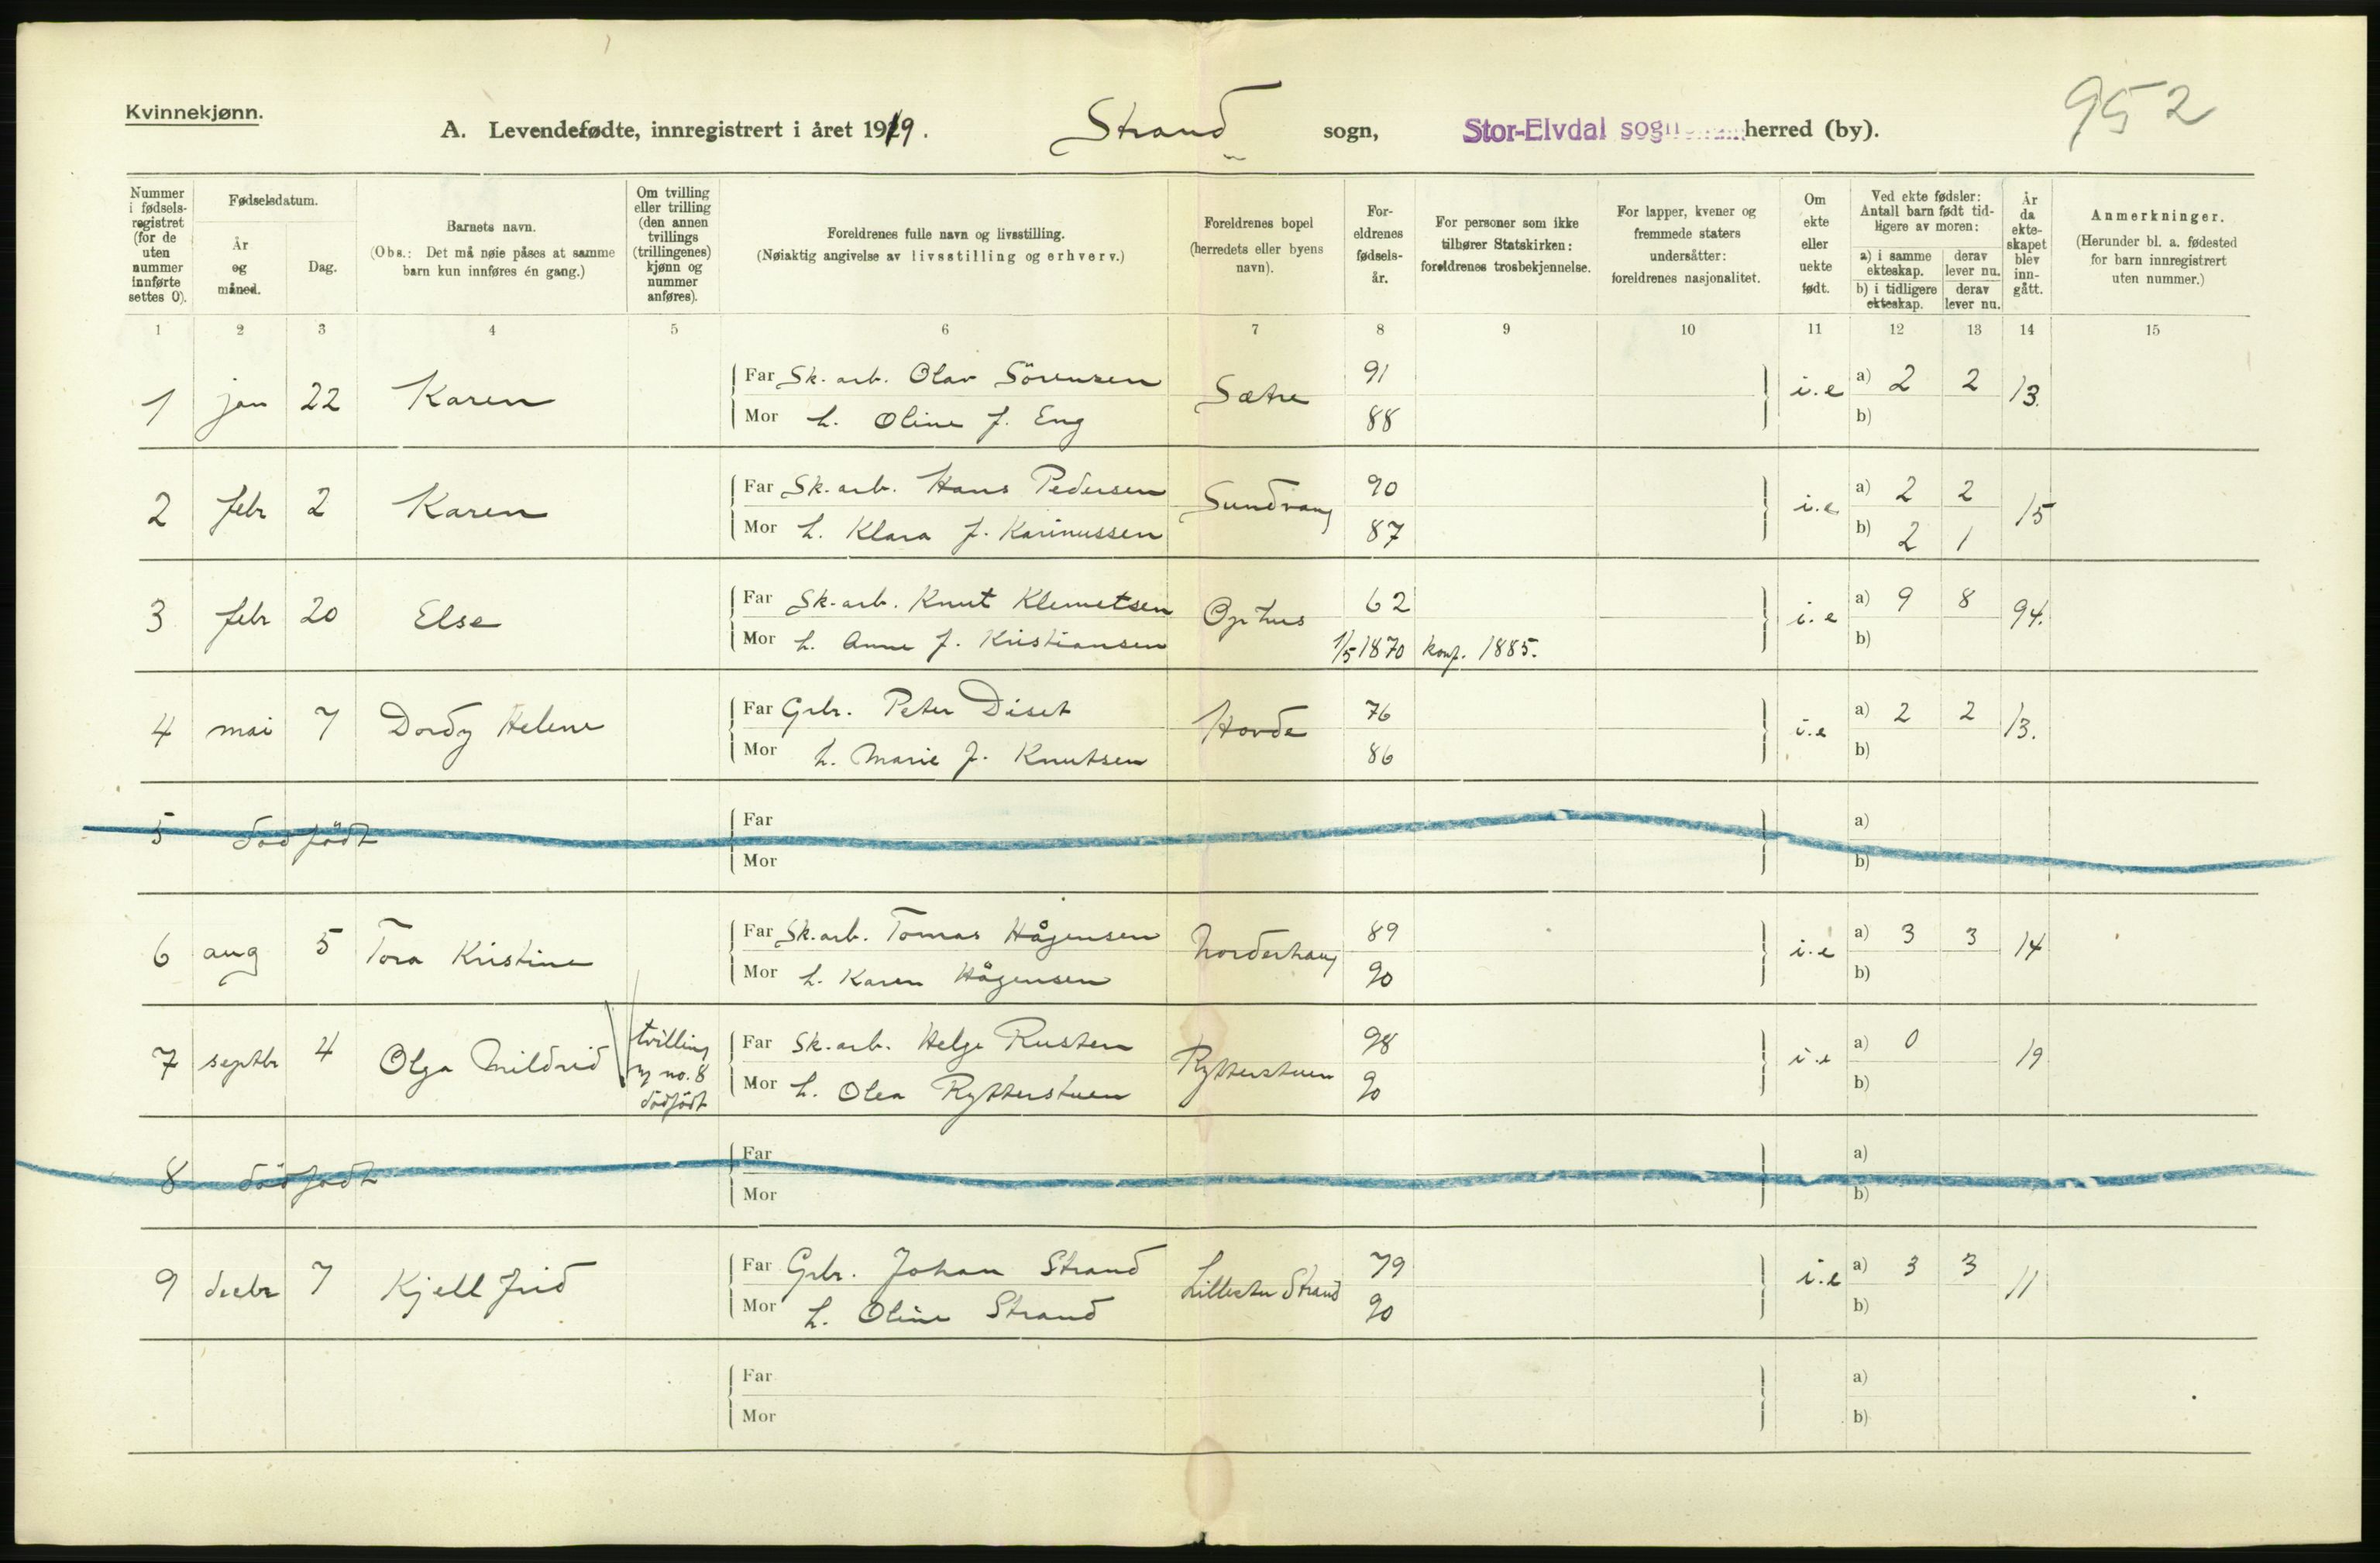 Kvinnekjønn.
A. Levendefødte, innregistrert i året 1919. Strand sogn, Stor-Elvdal herred (by).
952
Nummer i fødsels-registret (for de uten nummer innførte settes 0).
Fødselsdatum.
År og måned.
Dag.
Barnets navn.
(Obs.: Det må nøie påses at samme barn kun innføres én gang.)
Om tvilling eller trilling (den annen tvillings (trillingenes) kjønn og nummer anføres).
Foreldrenes fulle navn og livsstilling.
(Nøiaktig angivelse av livsstilling og erhverv.)
Foreldrenes bopel (herredets eller byens navn).
For-eldrenes fødsels-år.
For personer som ikke tilhører Statskirken: foreldrenes trosbekjennelse.
For lapper, kvener og fremmede staters undersåtter: foreldrenes nasjonalitet.
Om ekte eller uekte født.
Ved ekte fødsler: Antall barn født tid-ligere av moren:
a) i samme ekteskap. derav lever nu.
b) i tidligere ekteskap. derav lever nu.
År da ekte-skapet blev inn-gått.
Anmerkninger.
(Herunder bl. a. fødested for barn innregistrert uten nummer.)
1 2 3 4 5 6 7 8 9 10 11 12 13 14 15
1 jan 22 Karen Far Sk. arb. Olav Sörensen Sætre 91 i.e a) 2 2 13.
Mor h. Oline f. Eng 88 b)
2 febr 2 Karen Far Sk. arb. Hans Pedersen Sundvang 90 i.e a) 2 2 15
Mor h. Klara f. Karinussen 87 b) 2 1
3 febr 20 Else Far Sk. arb. Knut Klemetsen Ophus 62 i.e a) 9 8 94.
Mor h. Anne f. Kristiansen 1/5 1870 konf. 1885. b)
4 mai 7 Dordy Helene Far Grbr. Peter Diset Hovde 76 i.e a) 2 2 13.
Mor h. Marie f. Knutsen 86 b)
5 dödfödt Far a)
Mor b)
6 aug 5 Tora Kristine Far Sk. arb. Tomas Hågensen Norderhaug 89 i.e a) 3 3 14
Mor h. Karen Hågensen 90 b)
7 septbr 4 Olga Mildrid tvilling m no. 8 dödfödt Far Sk. arb. Helge Rusten Rytterstuen 98 i.e a) 0 19
Mor h. Olea Rytterstuen 90 b)
8 dödfödt Far a)
Mor b)
9 decbr 7 Kjellfrid Far Grbr. Johan Strand Lillestu Strand 79 i.e a) 3 3 11
Mor h. Oline Strand 90 b)
Far a)
Mor b)